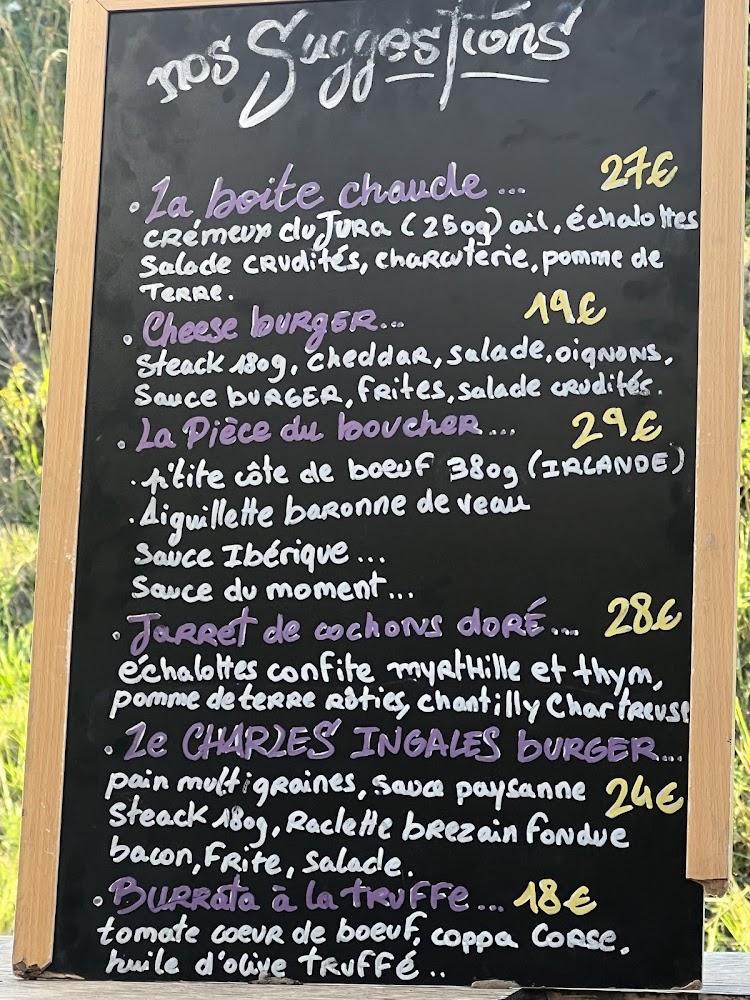 nos Suggestions
. La boite chaude... 27€
CRémeux du JURA (250g) ail, échalottes
Salade CRUdités, charcuterie, pomme de
TERRE.
. Cheese buRGER... 19€
Steack 180g, CheddaR, salade, oigNONS,
Sauce buRGER, FRites, salade cRudités.
. La Pièce du boucher... 29€
. p'tite côte de boeuf 380g (IRLANDE)
. Aiguillette baRonne de veau
Sauce Ibérique...
Sauce du moment...
. JaRRet de cochons doRÉ... 28€
échalottes confite myRtHille et thym,
pomme de teRRe Rôties, chantilly ChartReuse
. Le CHARLES INGALES buRGER...
pain multigraines, Sauce paysanne 24€
Steack 180g, Raclette bRezain fondue
bacon, FRite, salade.
. BuRRata à la tRuFFe... 18€
tomate coeuR de boeuf, coppa CoRSe,
huile d'olive tRuFFé..